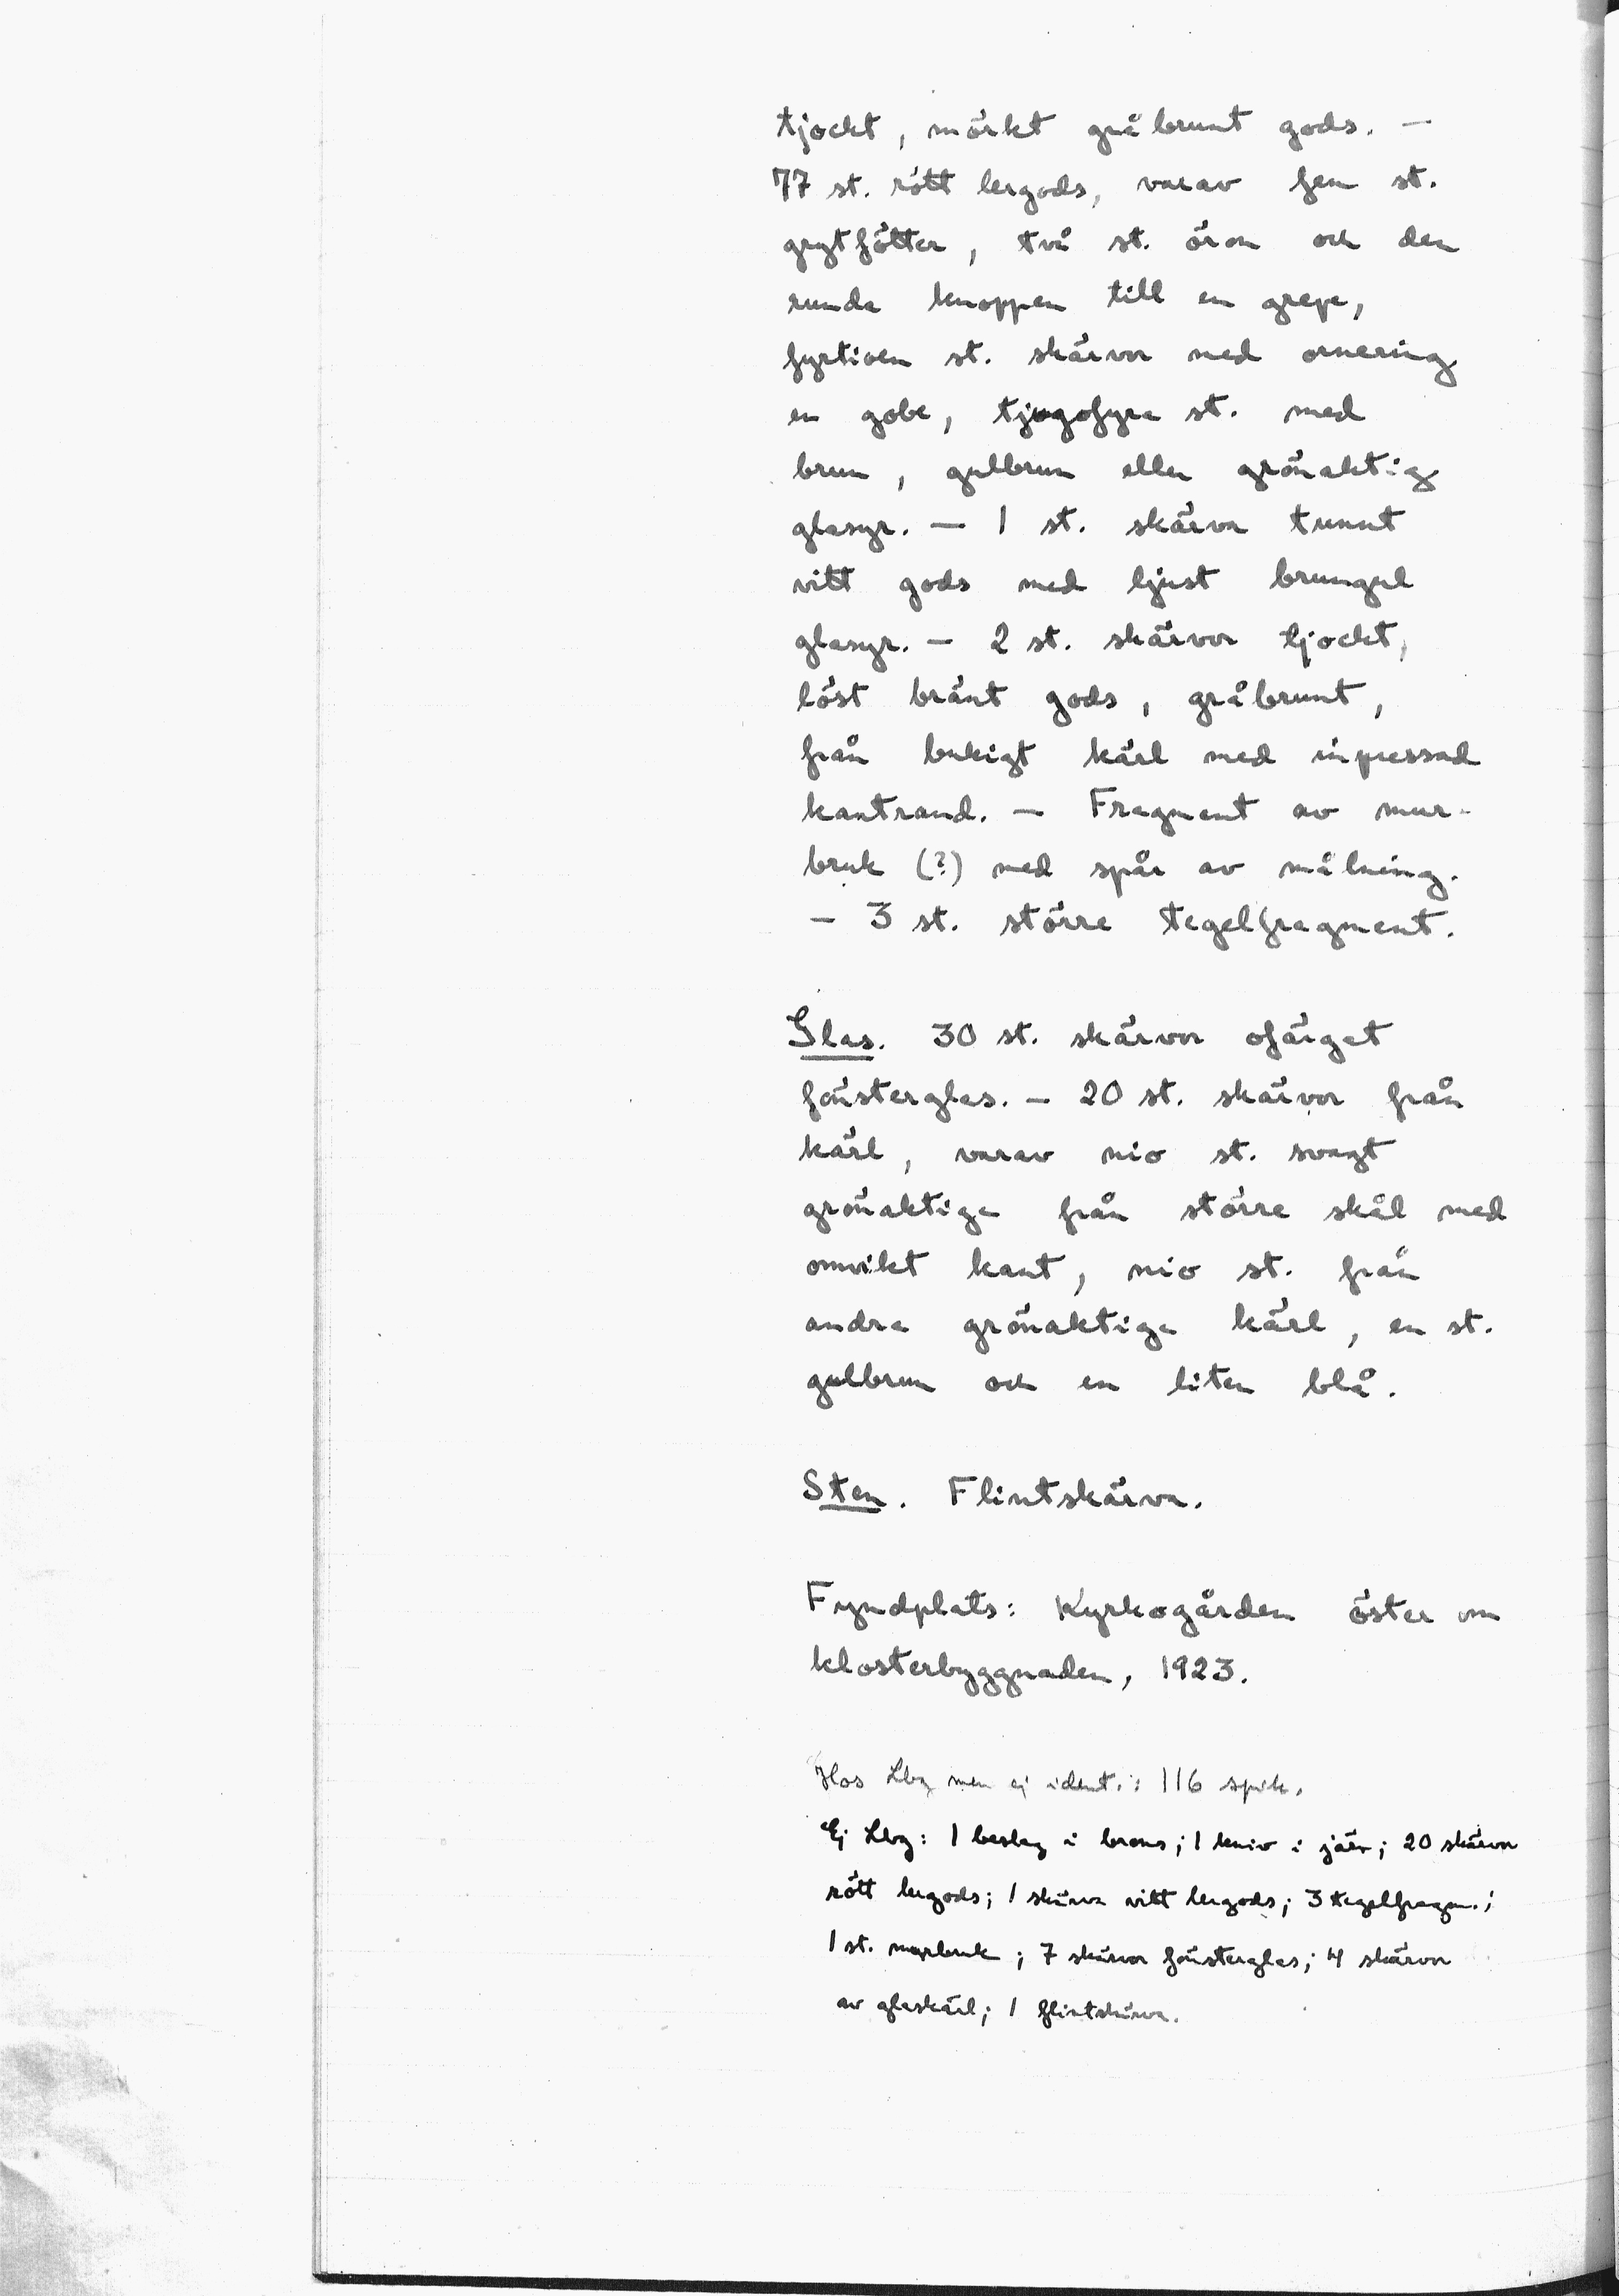 tjockt, mörkt gråbrunt gods. —
77 st. rött lergods, varav fem st.
grytfötter, två st. öron och den
runda knoppen till en grepe,
fyrtioen st. skärvor med ornering
en gobe, tjugofyra st. med
brun, gulbrun eller grönaktig
glasyr. — 1 st. skärva tunnt
vitt gods med ljust brungul
glasyr. — 2 st. skärvor tjockt,
löst bränt gods, gråbrunt,
från bukigt kärl med inpressad
kantrand. — Fragment av mur-
bruk (?) med spår av målning.
— 3 st. större tegelfragment.
Glas. 30 st. skärvor ofärgat
fönsterglas. — 20 st. skärvor från
kärl, varav nio st. svagt
grönaktiga från större skål med
omvikt kant, nio st. från
andra grönaktiga kärl, en st.
gulbrun och en liten blå.
Sten. Flintskärva.
Fyndplats: Kyrkogården öster om
klosterbyggnaden, 1923.
Hos Lbg men ej ident.: 116 spik.
Ej Lbg: 1 beslag i brons; 1 kniv i järn; 20 skärvor
rött lergods; 1 skärva vitt lergods; 3 tegelfragm.;
1 st. murbruk; 7 skärvor fönsterglas; 4 skärvor
av glaskärl; 1 flintskärva.